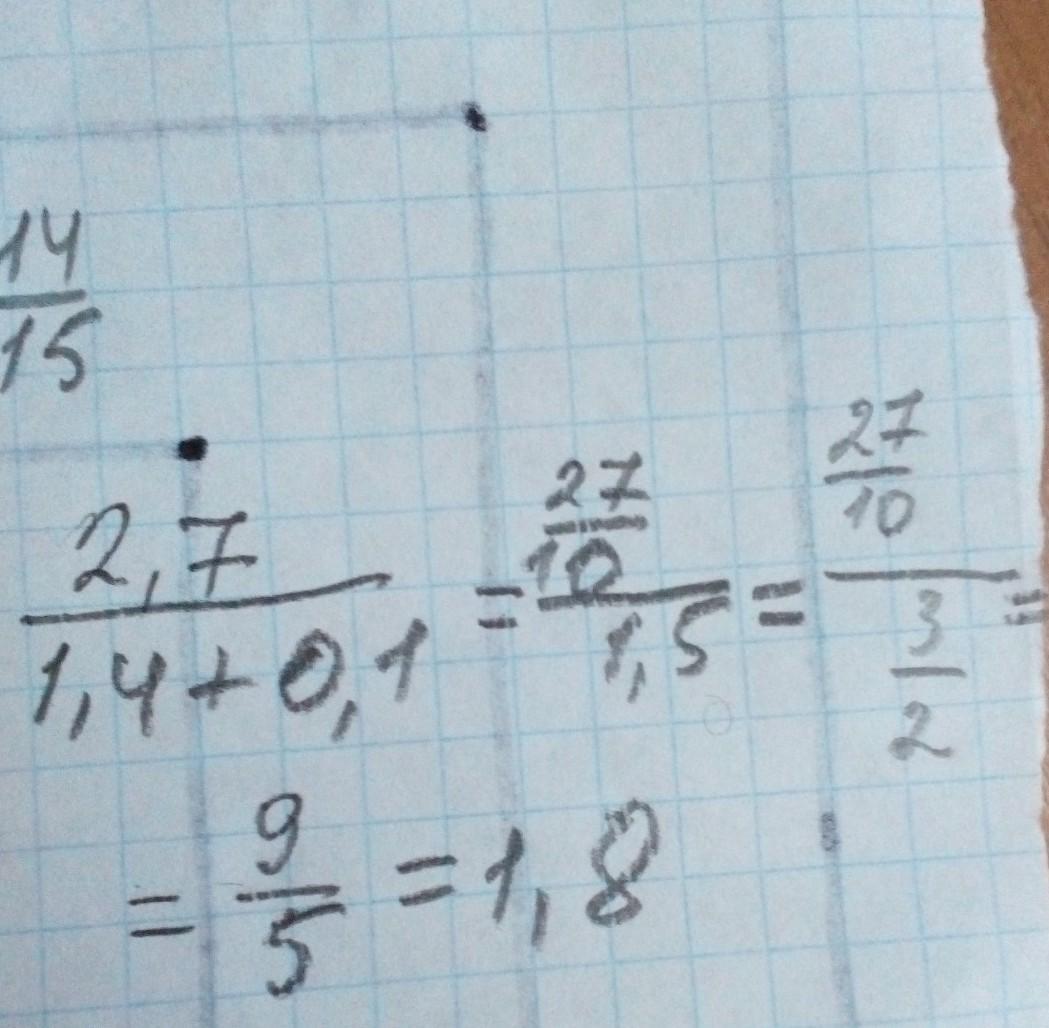 14/15
2,7/(1,4+0,1) = (27/10)/1,5 = (27/10)/(3/2) =
= 9/5 = 1,8